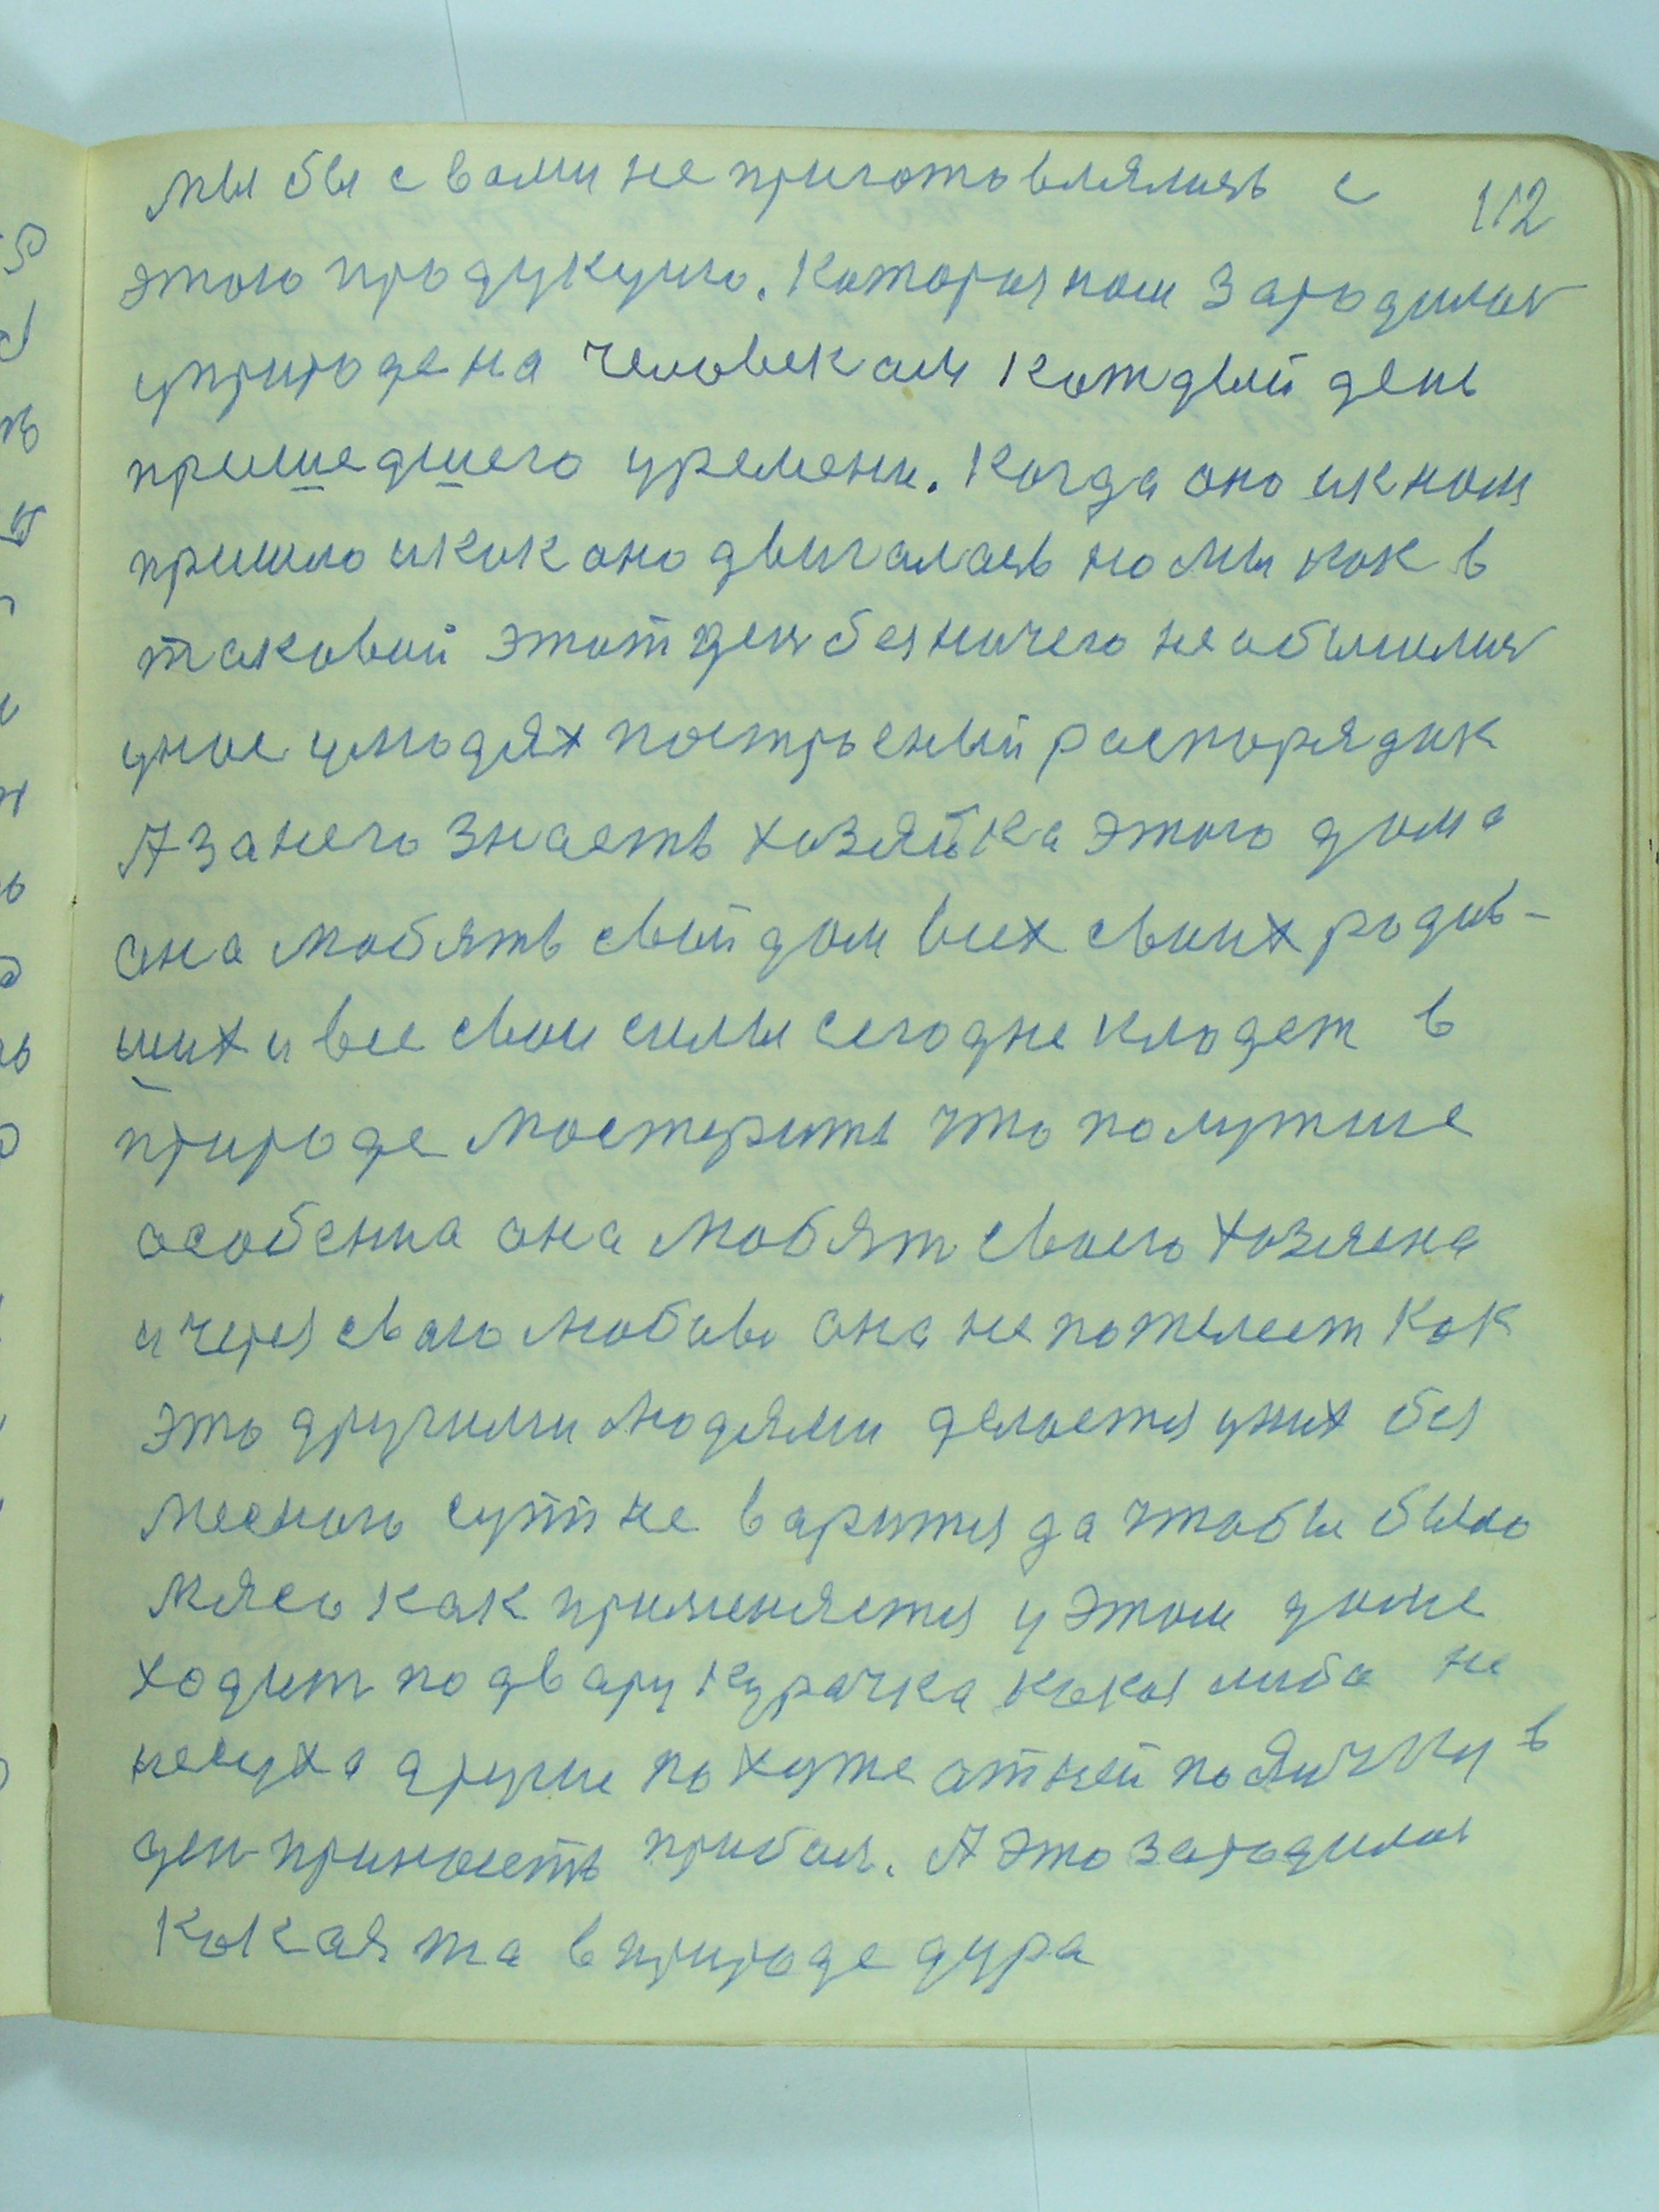 мы бы с вами не приготовлялись с 112
этою продукцию. Которая нам зародилась
уприроде на человекам каждый день
пришедшего уремени. Когда оно и к нам
пришло и как оно двигалась но мы как в
таковой этот ден без ничего не обошлись
унас улюдях построеный распорядак
А за него знаеть хозяйка этого дома
она любять свой дом всих своих родив-
ших и все свои силы сегодне кладет в
природе мостерить что полутше
особенна она любят своего хозяена
и через сваю любовь она не пожелеет как
это другими людями делается у них без
месного суп не варится да чтобы было
мясо как применяется у этом доме
ходит по двару курачка какая либа не
несуха другие по хуже от ней по яичку в
ден приносеть прибыл. А это зародилась
какая та в природе дура